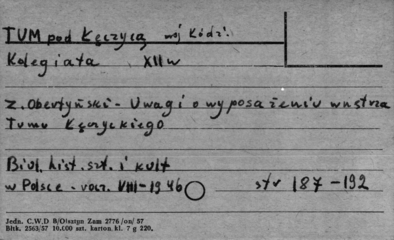 TUM pod Łęczycą woj Łódź.
Kolegiata XII w
Z. Obertyński - Uwagi o wyposażeniu wnętrza
Tumu Łęczyckiego
Biul. hist. szt. i kult
w Polsce - rocz. VIII - 1946 str 187-192
Jedn. C.W.D B/Olsztyn Zam 2776/on/57
Bltk. 2563/57 10.000 szt. karton kl. 7 g 220.